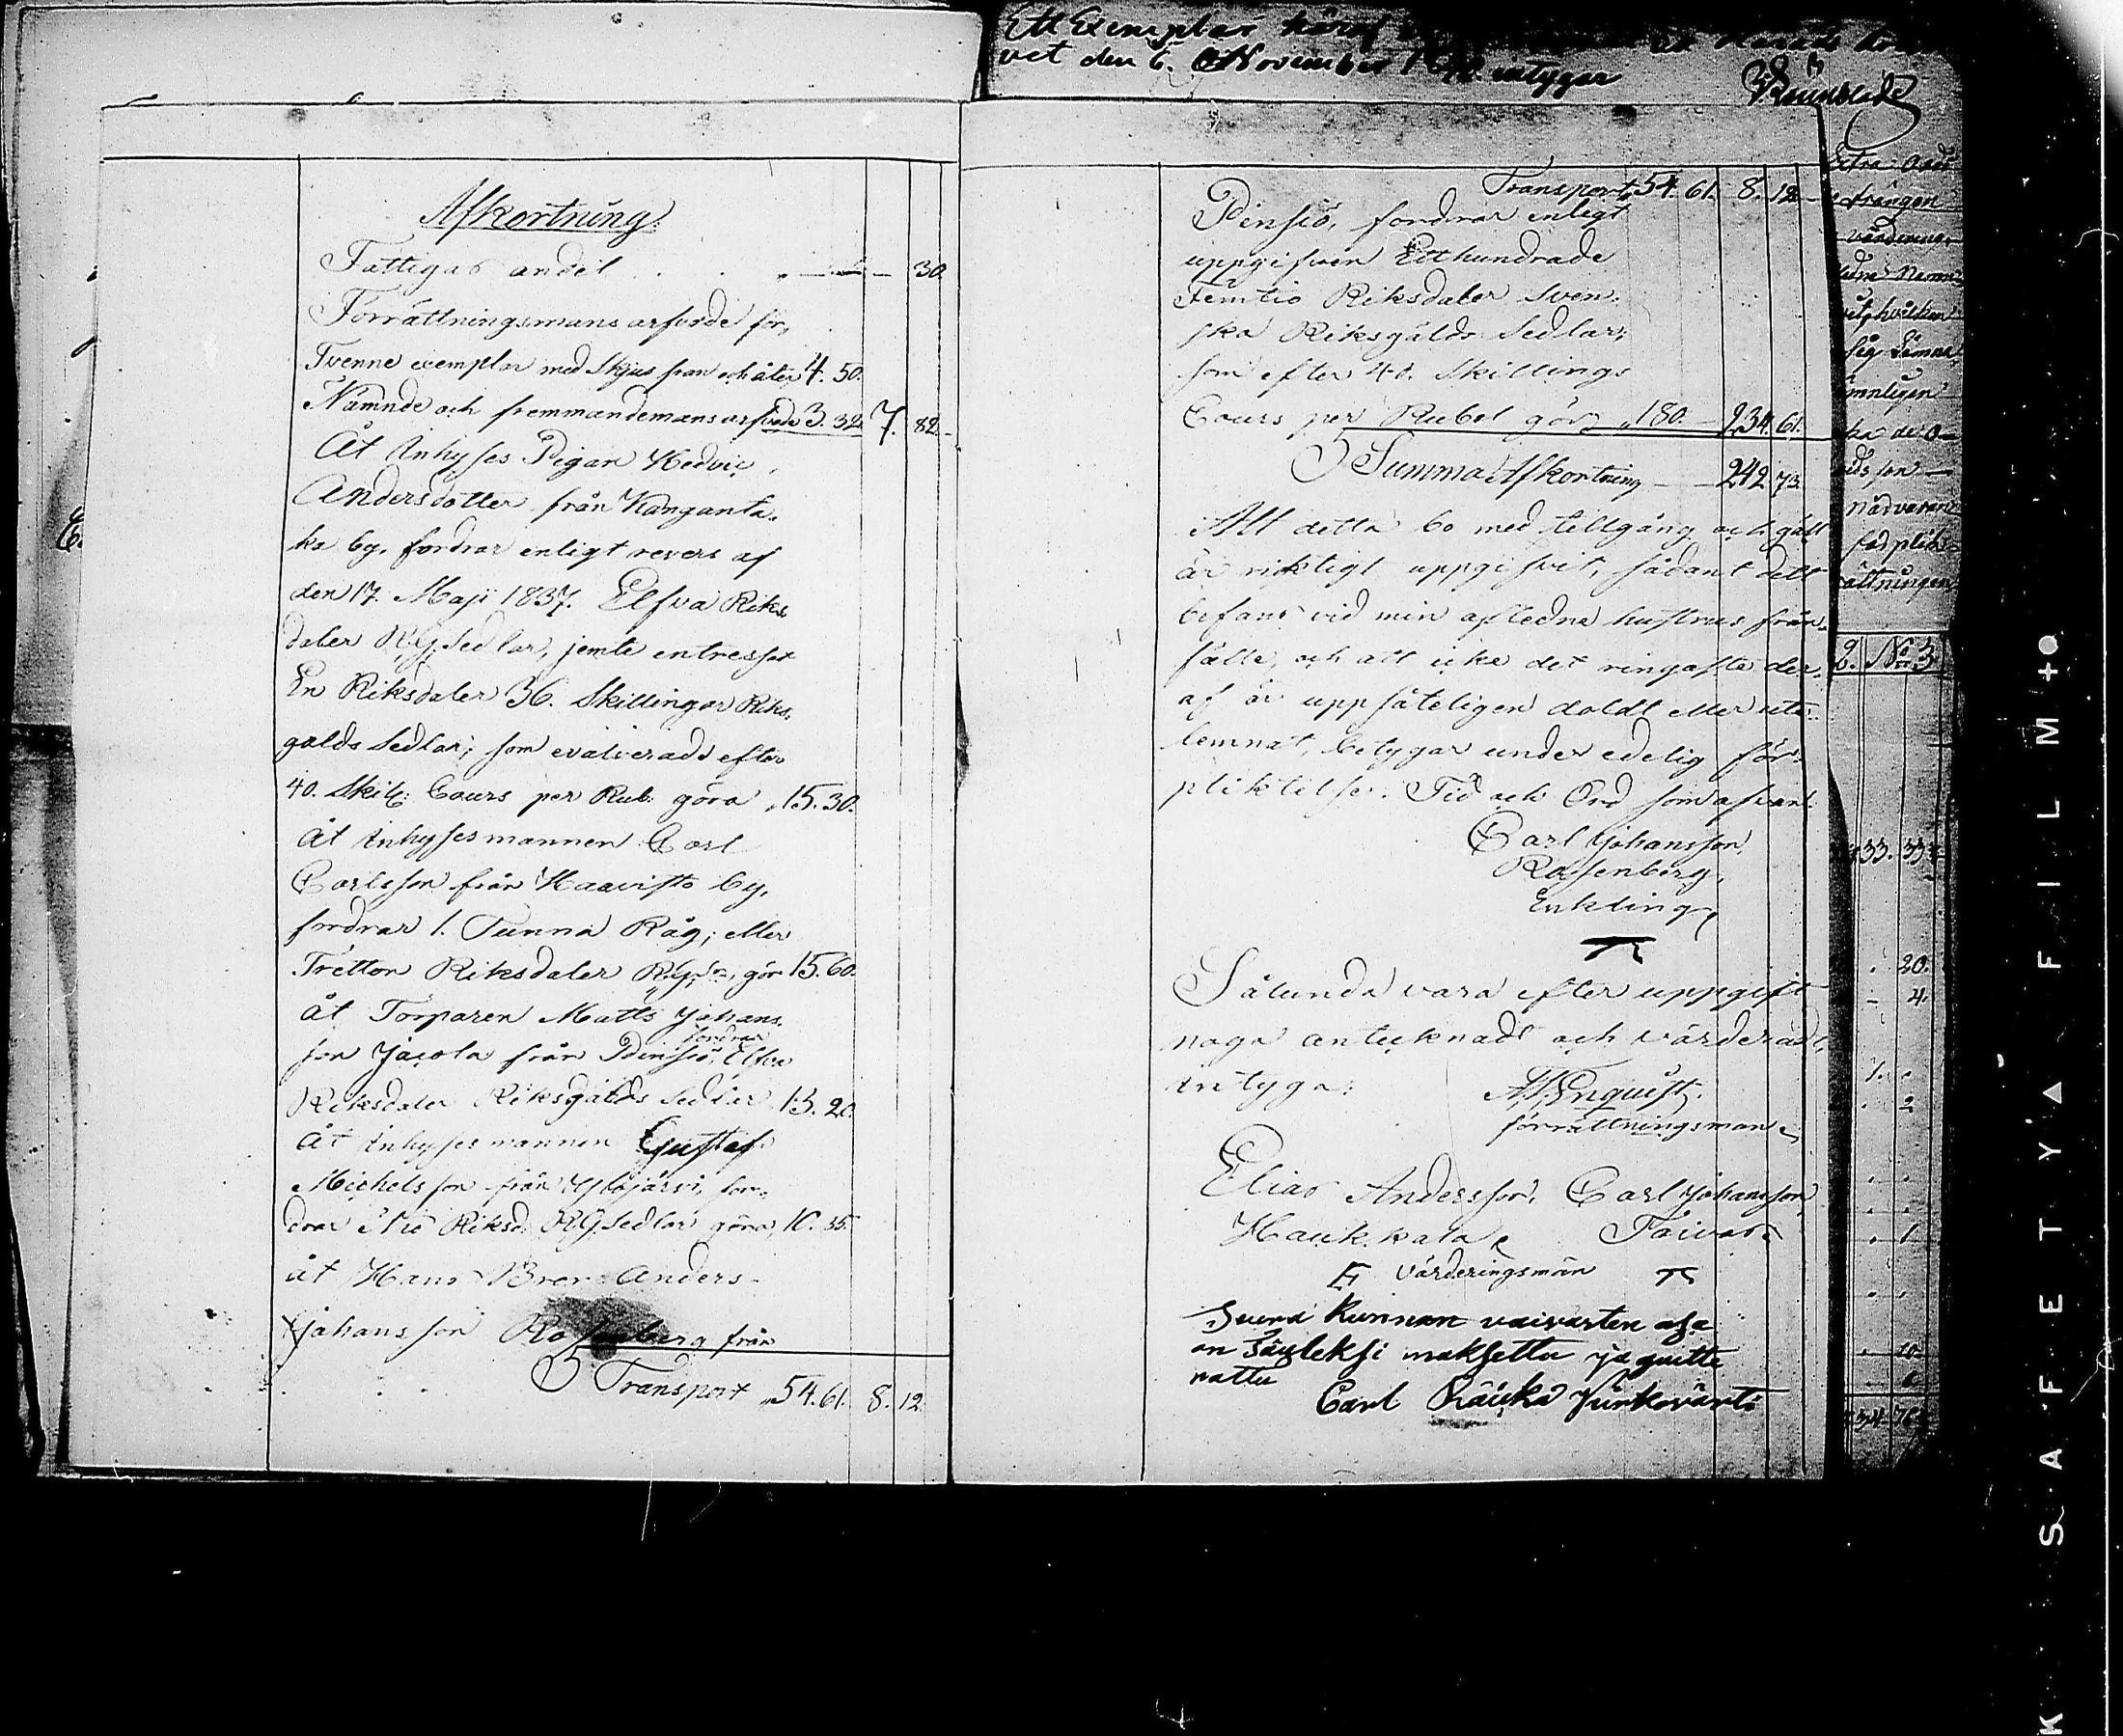 Ett Exemplar häraf
vet den 6. November intygar
Afkortning:
Fattigas andel . . . 30.
Förrättningsmans arfvode för,
Tvenne exemplar med Skjus fran och åter 4. 50.
Nämnde och fremmandemans arfvode 3. 32. 7. 82.
Åt Inhyses Pigan Hedvig
Andersdotter från Kanganta-
ka by. fordrar enligt revers af
den 17. Maji 1837. Elfva Riks-
daler RGSedlar, jemte entresset
En Riksdaler 36. Skillingar Riks-
gälds Sedlar; som evalverade efter
40. Skill: Cours per Rub: göra „15. 30.
åt Inhysesmannen Carl
Carlsson från Haavisto by,
fordrar 1. Tunna Råg; eller
Tretton Riksdaler gör 15. 60.
åt Torparen Matts Johans-
son Jacola från Pinsiö, fordrar Elfva
Riksdaler Riksgälds Sedlar 13. 20.
åt Inhysesmannen Gustaf
Michelsson från Ylöjärvi, for-
drar Nio Riksd. RGSedlar göra, 10. 35.
åt Hans Bror Anders
Johansson Rosenberg från
Transport „54. 61. 8. 12.
Transport „54. 61. 8. 12
Pinsiö, fordrar enligt
uppgifven Etthundrade
Femtio Riksdaler Sven-
ska Riksgälds Sedlar,
som efter 40. Skillings
Cours per Rubel gör „180. – 234. 61.
Summa Afkortning – 242 73.
Att detta bo med tillgång och gäld
är riktigt uppgifvit, sådant dett
befans vid min aflednа hustrus från-
fälle, och att icke det ringaste der-
af är uppsåteligen doldt eller ute-
lemnat, betygar under edelig för-
pliktelse. Tid och Ord som ofvan.
Carl Johansson
Rosenberg,
Enkling,
Sålunda vara efter uppgift
noga antecknadt och värderadt,
intyga:
Enquist.
förrättningsman
Elias Andersson, Carl Johansson
Haukkala Toivola
värderingsmän
Suena Kunnan vaivasten osa
on Täyleksi maksettu ja quitte
rattu
Carl
Extra
värdering
hvilken
sig
ämnligen
närvaran
ättningen
№ 3
33. 33
20.
4.
2
1
10